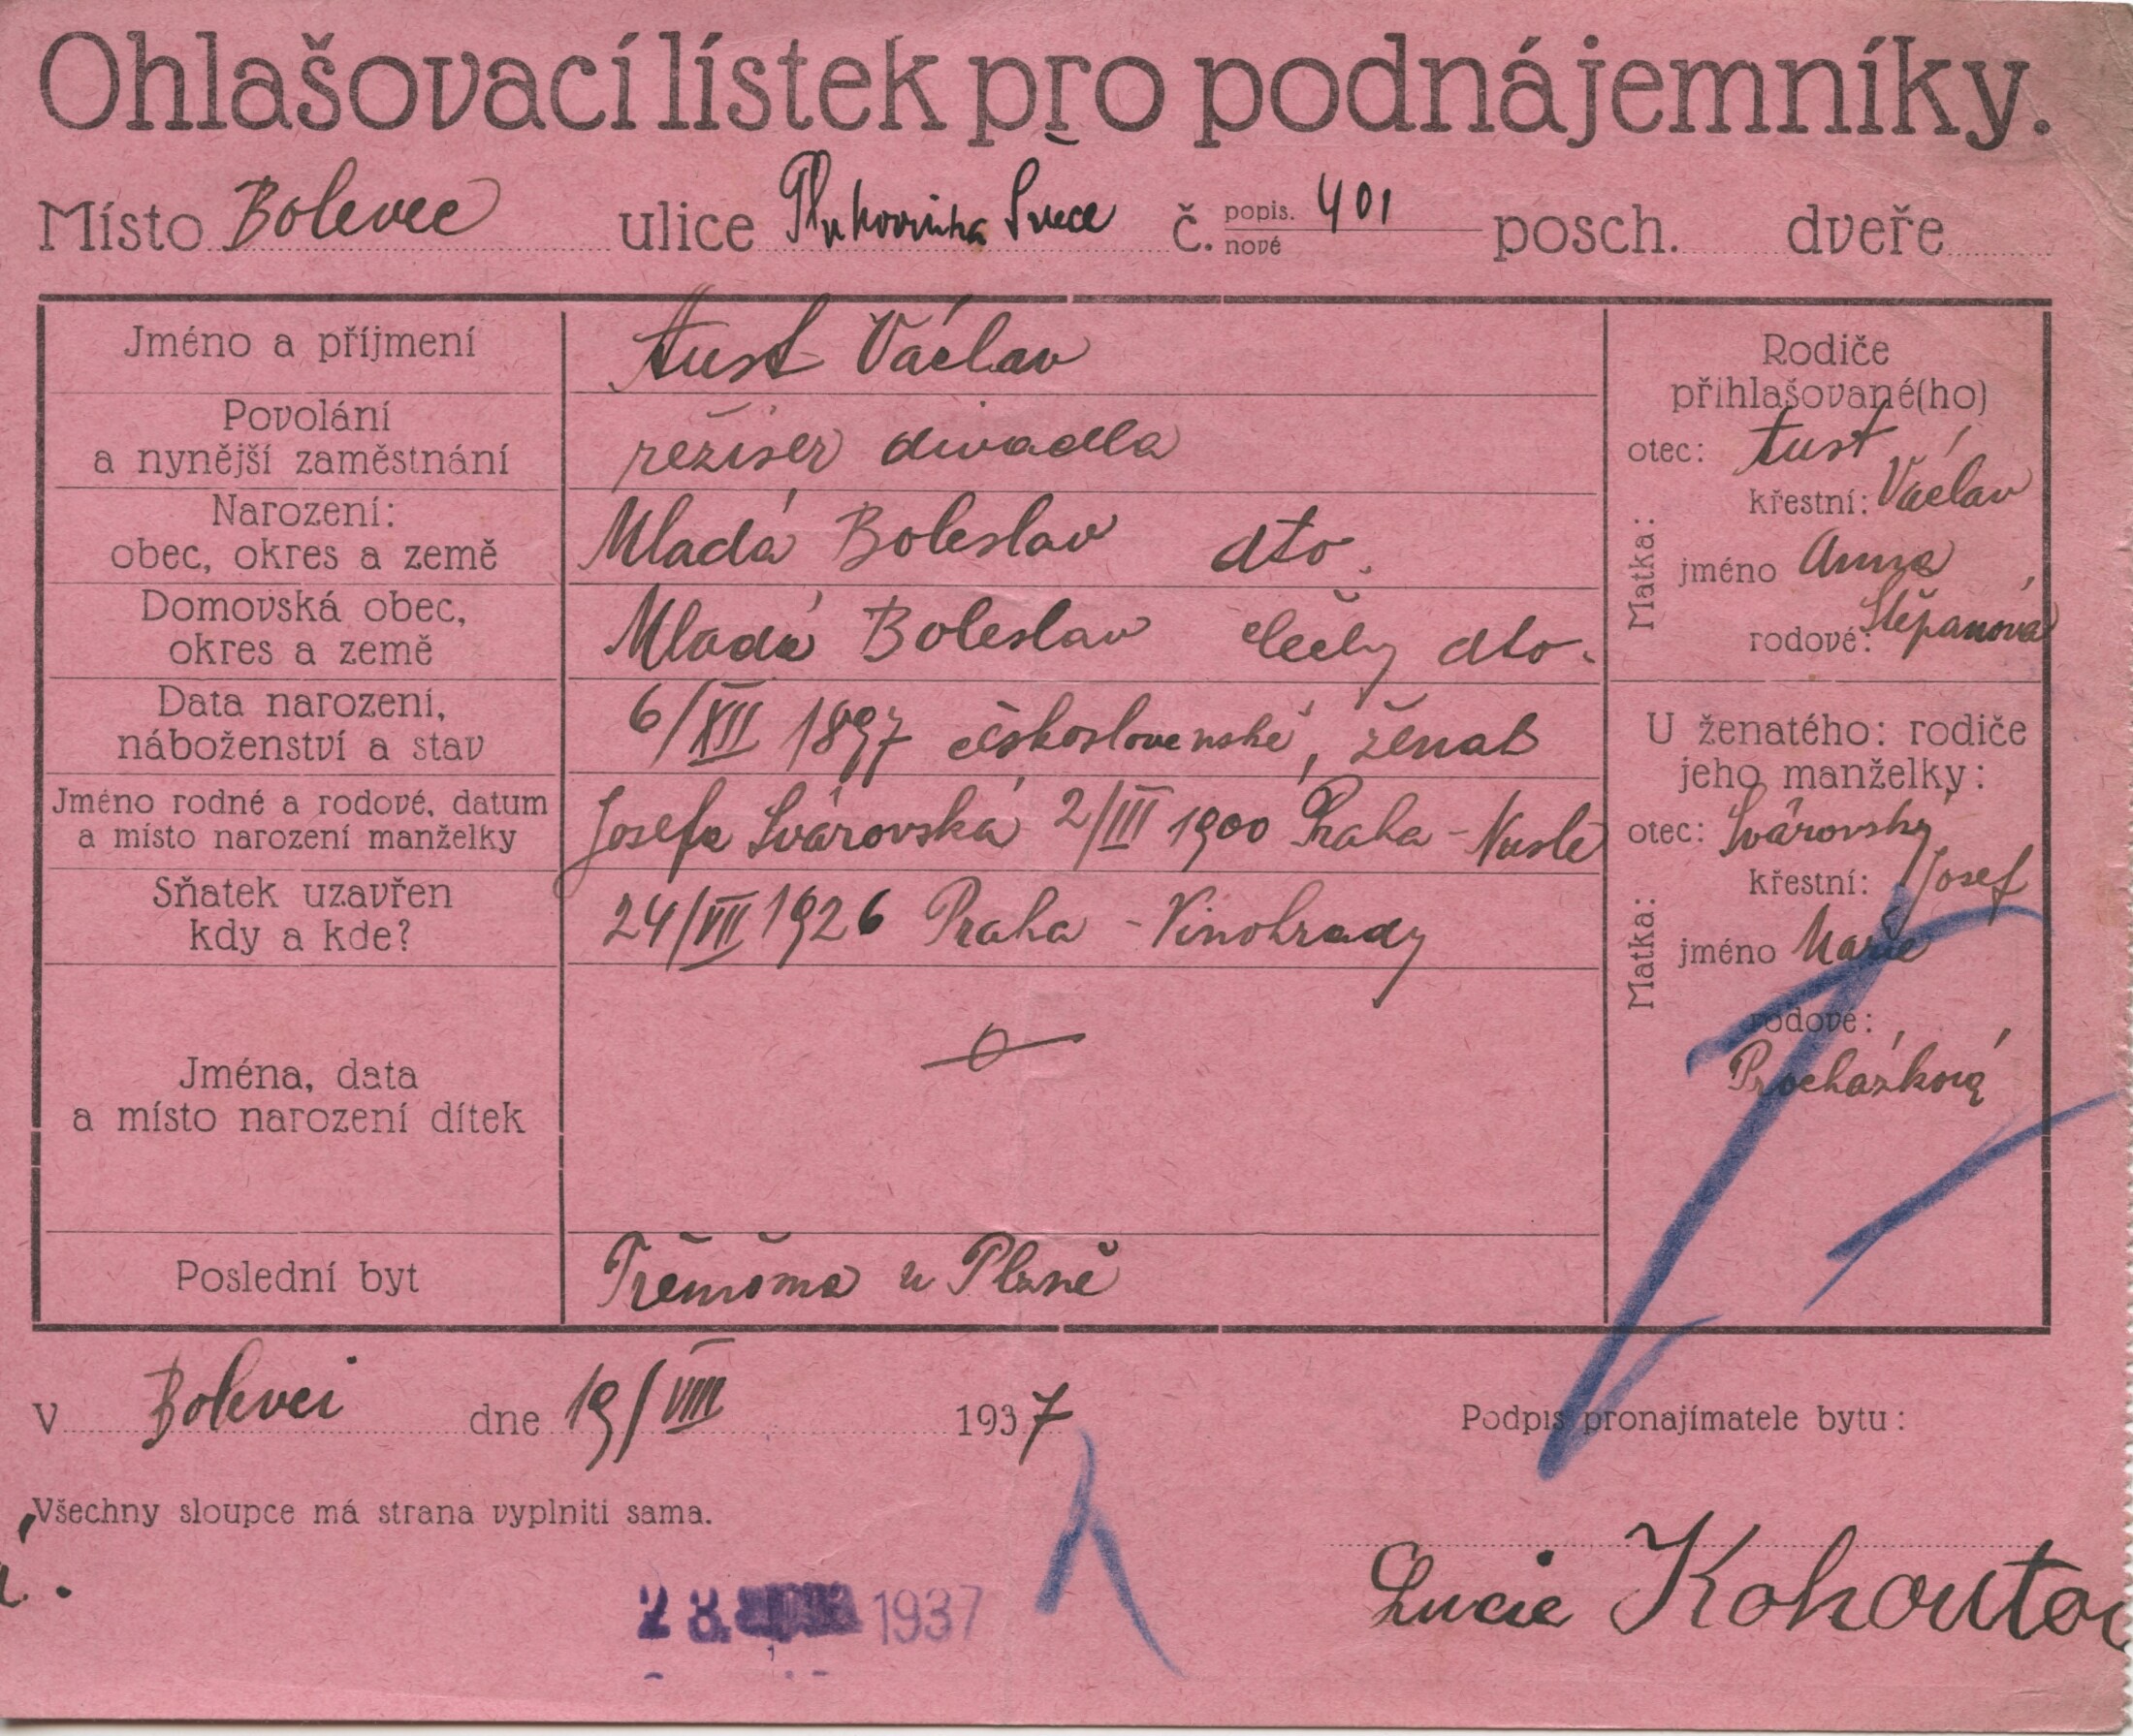 Ohlašovací lístek pro podnájemníky.
Místo Bolevec ulice Plukovníka Švece č. popis. 401 posch. dveře
nové
Jméno a příjmení Aust Václav
Povolání
a nynější zaměstnání režisér divadla
Narození:
obec, okres a země Mladá Boleslav dto.
Domovská obec,
okres a země Mladá Boleslav Čechy dto.
Data narození,
náboženství a stav 6/XII 1897 československé, ženat
Jméno rodné a rodové, datum
a místo narození manželky Josefa Svárovská 2/III 1900 Praha - Nusle
Sňatek uzavřen
kdy a kde? 24/VII 1926 Praha - Vinohrady
Jména, data
a místo narození dítek
Poslední byt Třemošna u Plzně
Rodiče
přihlašované(ho)
otec: Aust
křestní: Václav
Matka:
jméno Anna
rodové: Štěpánová
U ženatého: rodiče
jeho manželky:
otec: Svárovský
křestní: Josef
Matka:
jméno Marie
rodové:
Procházková
V Bolevci dne 19/VIII 1937 Podpis pronajímatele bytu:
Všechny sloupce má strana vyplniti sama.
Lucie Kohoutov
28. 1937